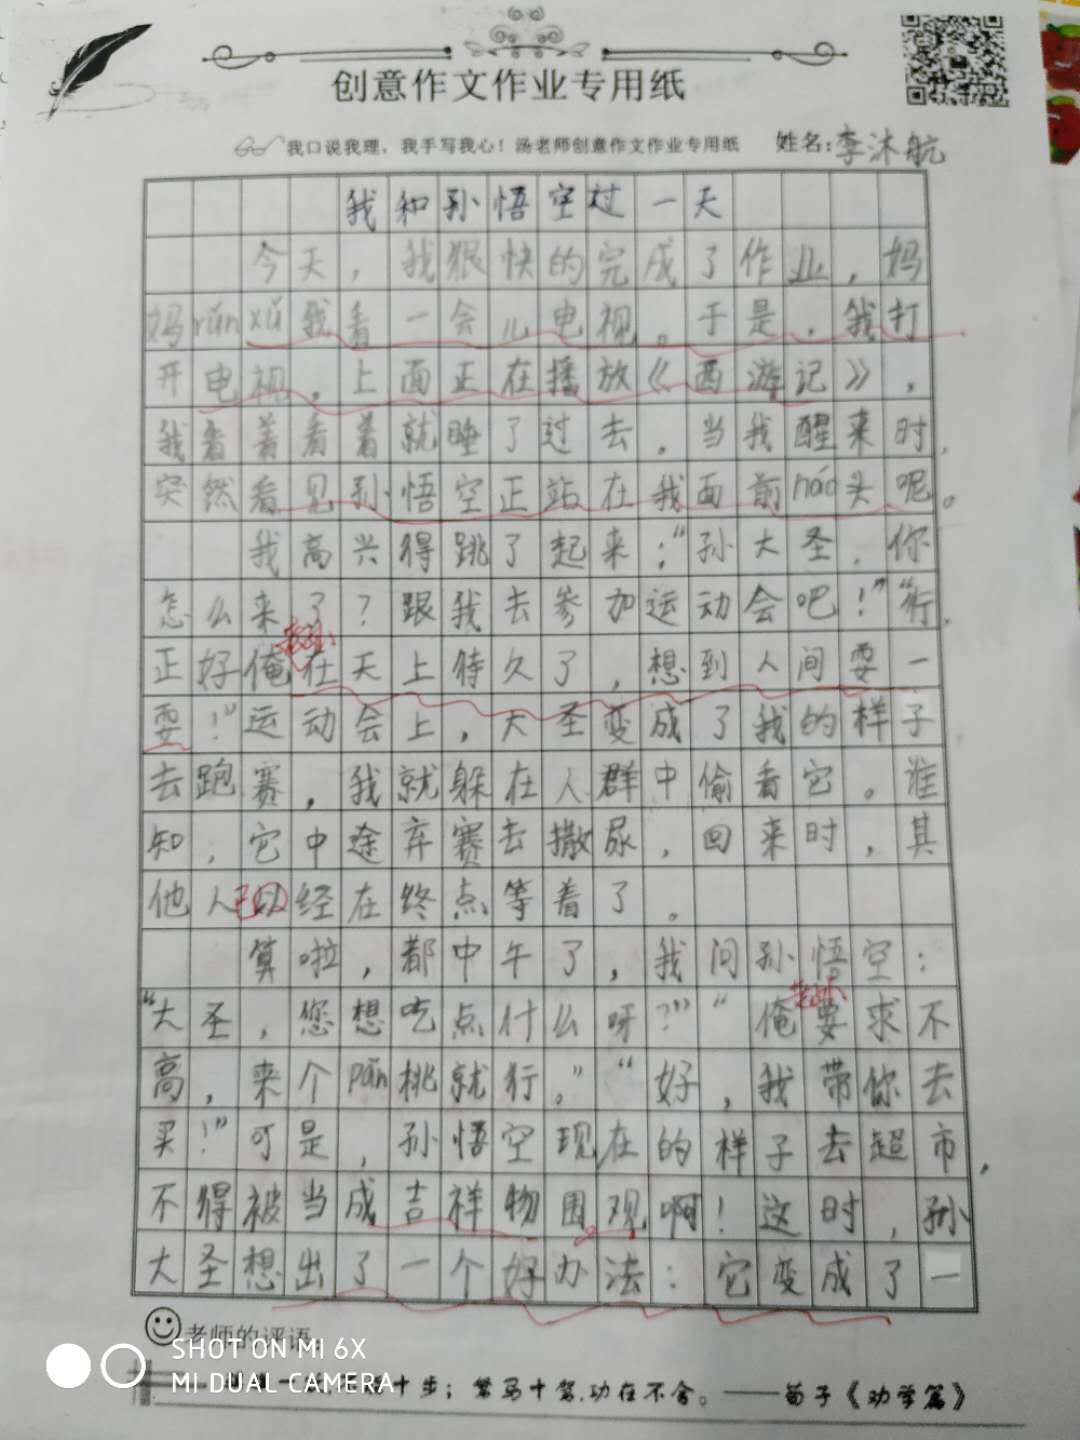 创意作文作业专用纸
我口说我理，我手写我心！汤老师创意作文作业专用纸 姓名：李沐航
我和孙悟空过一天
今天，我狠快的完成了作业，妈
妈rǔn xǔ我看一会儿电视。于是，我打
开电视，上面正在播放《西游记》，
我看着看着就睡了过去。当我醒来时，
突然看见孙悟空正站在我面前náo头呢。
我高兴得跳了起来：“孙大圣，你
怎么来了？跟我去参加运动会吧！”“行，
正好俺老孙在天上待久了，想到人间耍一
耍！”运动会上，大圣变成了我的样子
去跑赛，我就躲在人群中偷看它。谁
知，它中途弃赛去撒尿，回来时，其
他人已经在终点等着了。
算啦，都中午了，我问孙悟空：
“大圣，您想吃点什么呀？”“俺老孙要求不
高，来个pán桃就行。”“好，我带你去
买！”可是，孙悟空现在的样子去超市，
不得被当成吉祥物围观啊！这时，孙
大圣想出了一个好办法：它变成了一
老师的评语：
十步；驽马十驾，功在不舍。——荀子《劝学篇》
SHOT ON MI 6X
MI DUAL CAMERA